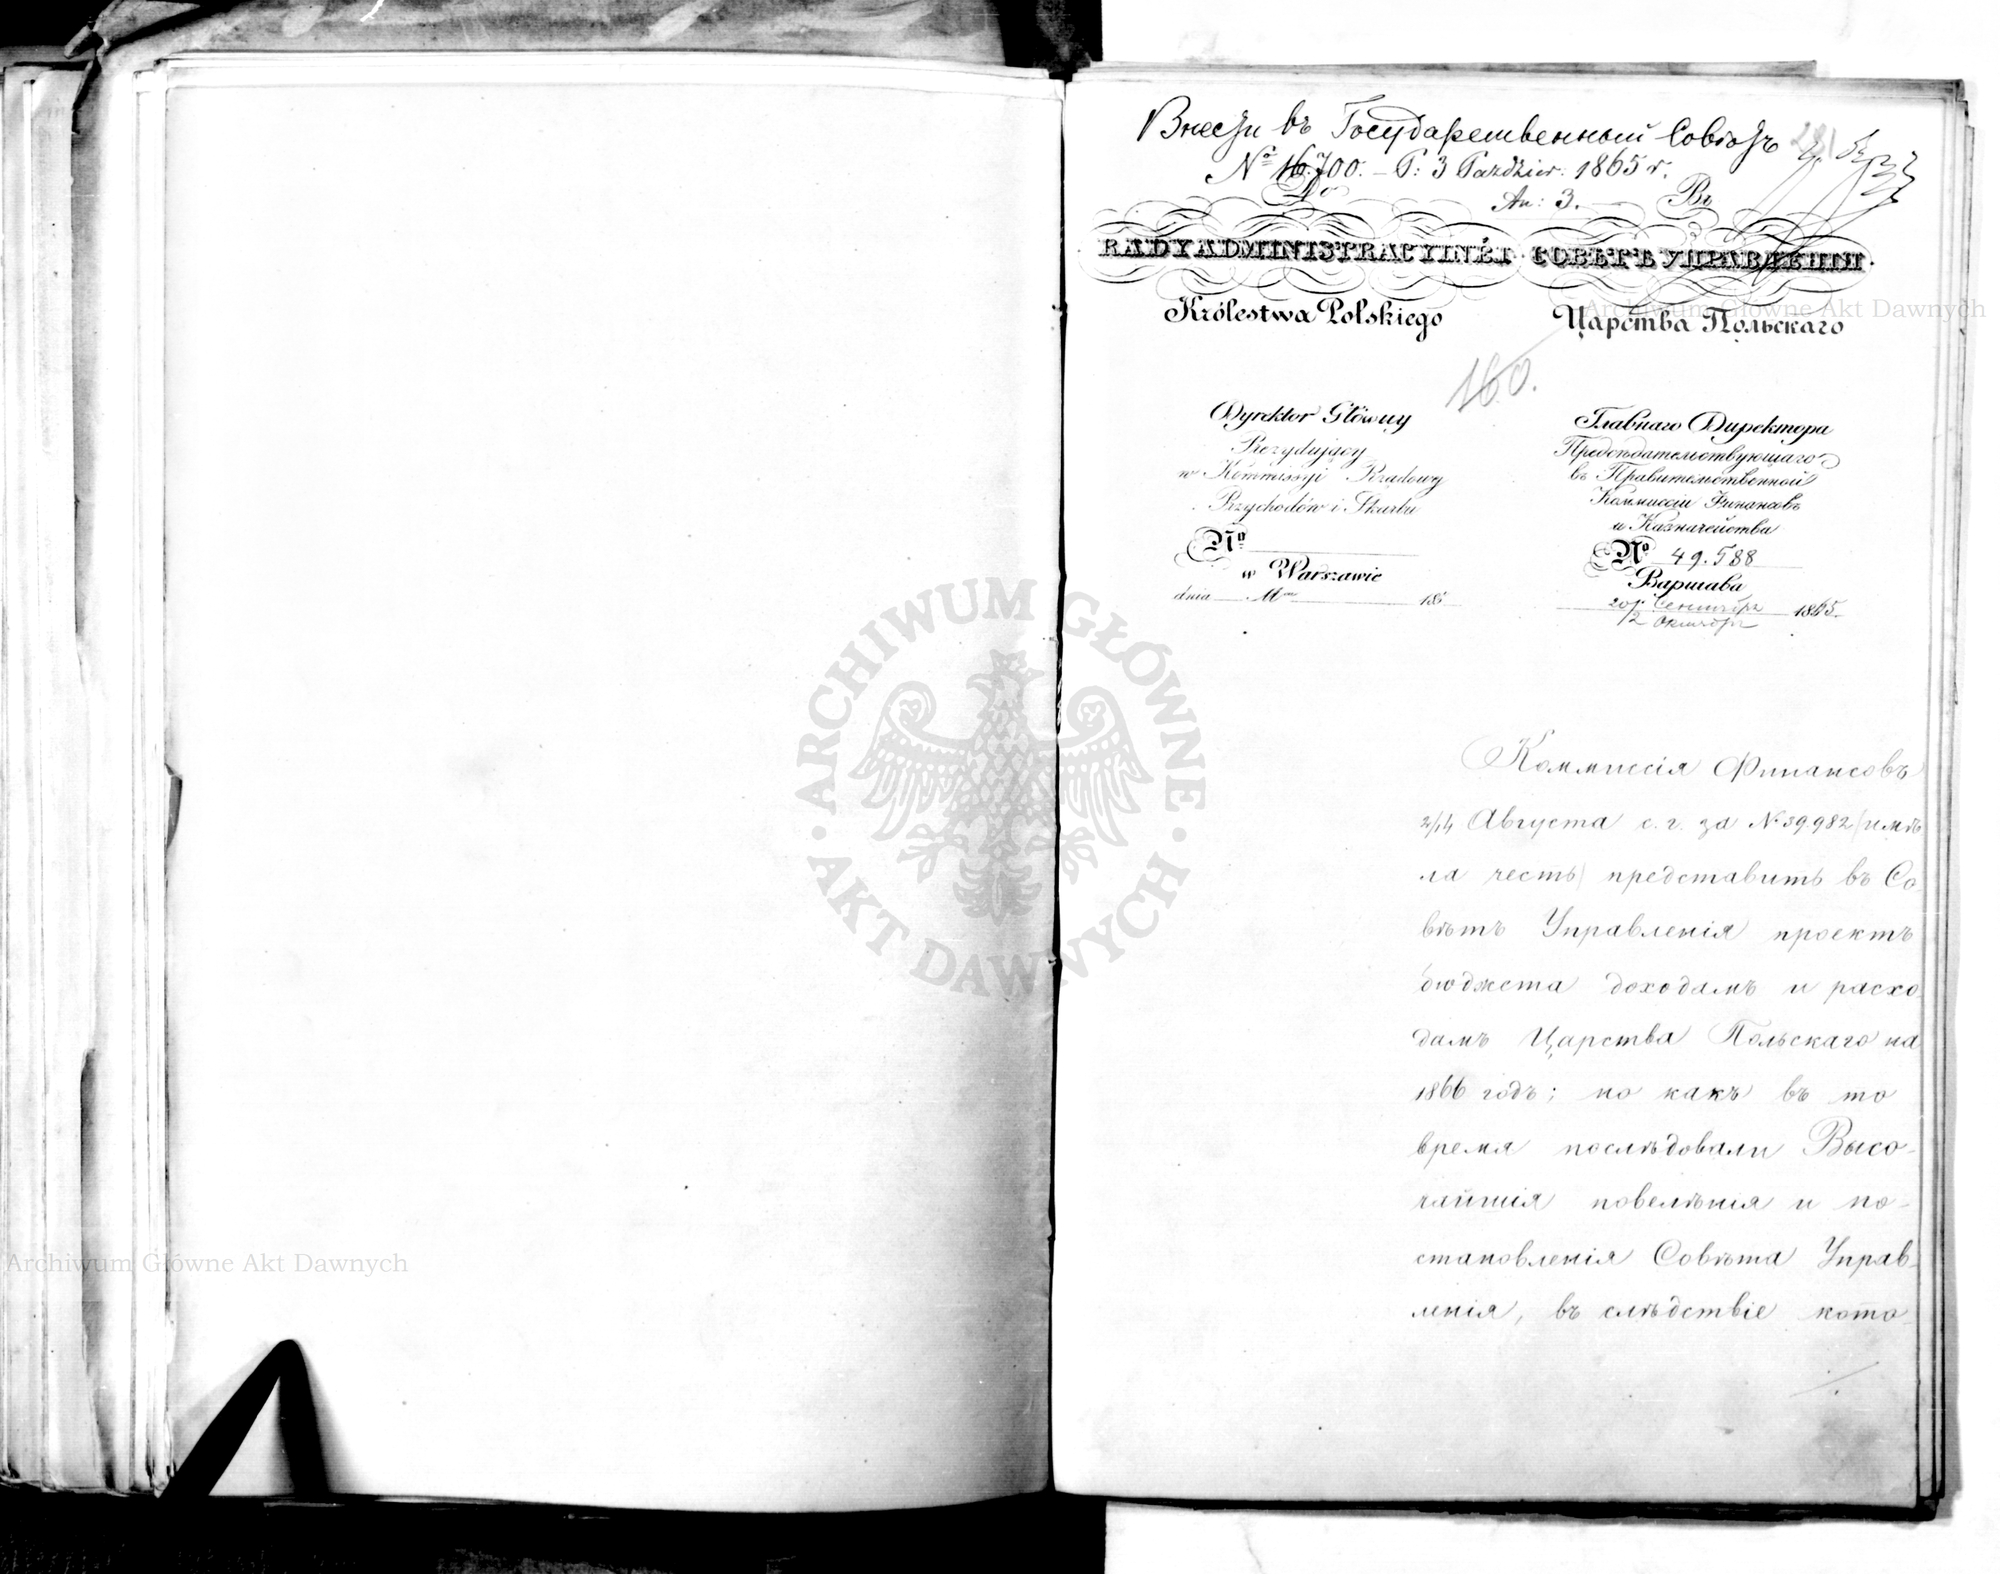 Внести въ Государственный Совѣтъ
281
№ 16.700. – P: 3 Paździer: 1865 r.
Do
An: 3.
Въ
RADY ADMINISTRACYINÉJ
СОВѢТЪ УПРАВЛЕНІЯ.
Królestwa Polskiego
Царства Польскаго
160.
Dyrektor Główny
Prezydujący
w Kommissyi Rządowy
Przychodów i Skarbu
№
w Warszawie
dnia Mca 186
Главнаго Директора
Предсѣдательствующаго
въ Правительственной
Коммиссіи Финансовъ
и Казначейства
№ 49.588
Варшава
20 Сентября
/2 Октября 1865.
Коммиссія Финансовъ
2/14 Августа с. г. за № 39.982 (имѣ
ла честь) представить въ Со
вѣтъ Управленія проектъ
бюджета доходамъ и расхо
дамъ Царства Польскаго на
1866 годъ; но какъ въ то
время послѣдовали Высо-
чайшія повелѣнія и по-
становленія Совѣта Управ
ленія, въ слѣдствіе кото
Archiwum Główne Akt Dawnych
Archiwum Główne Akt Dawnych
ARCHIWUM GŁÓWNE
AKT DAWNYCH